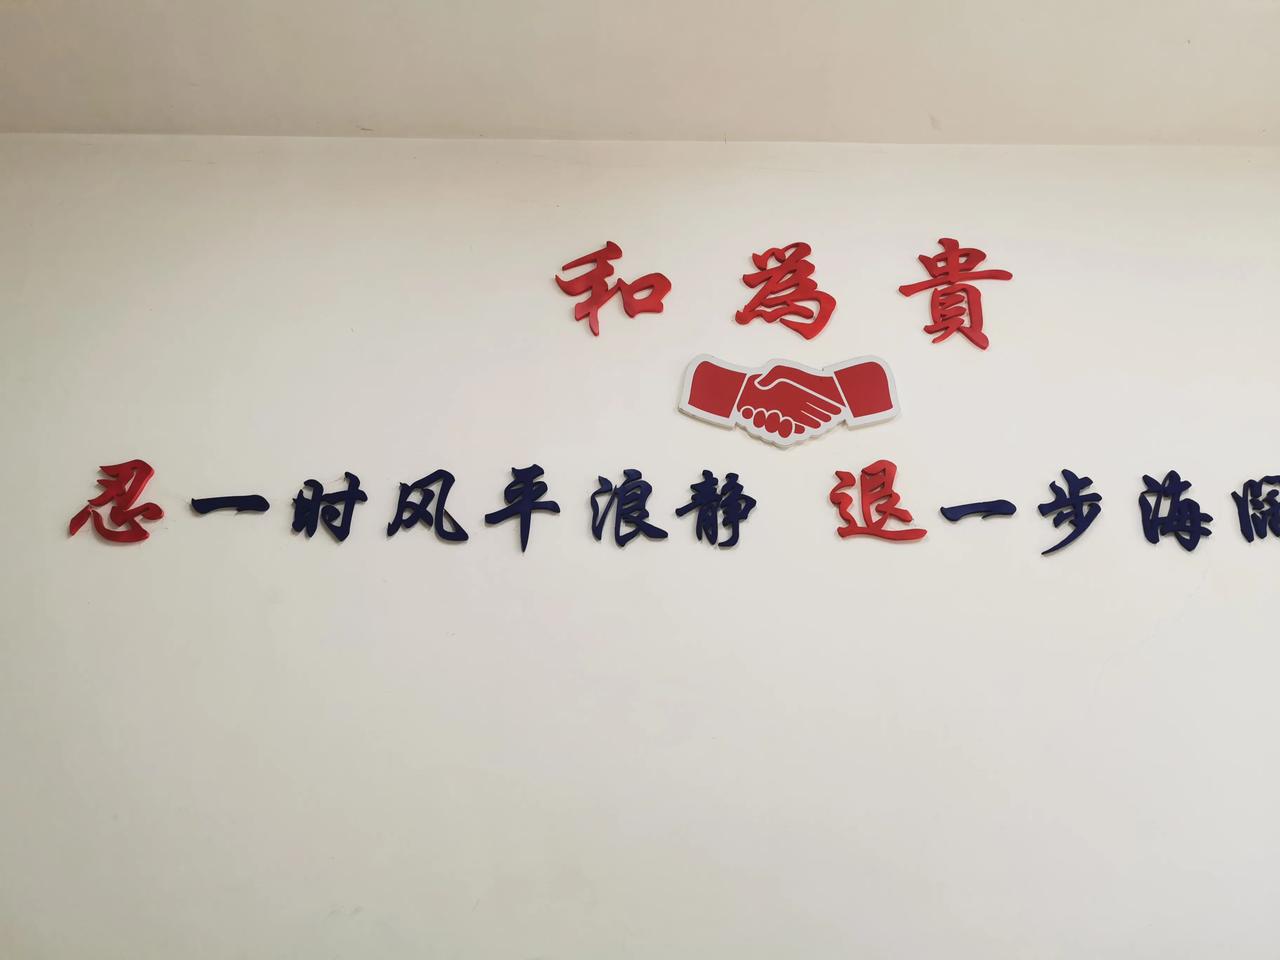 和為貴
忍一时风平浪静 退一步海阔